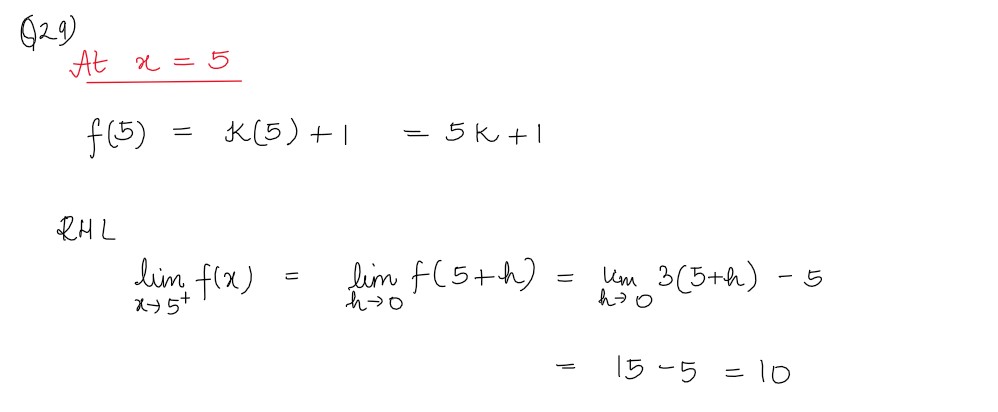 Q29)
At x = 5
f(5) = K(5) + 1 = 5K + 1
RHL
lim x→5⁺ f(x) = lim h→0 f(5+h) = lim h→0 3(5+h) - 5
= 15 - 5 = 10